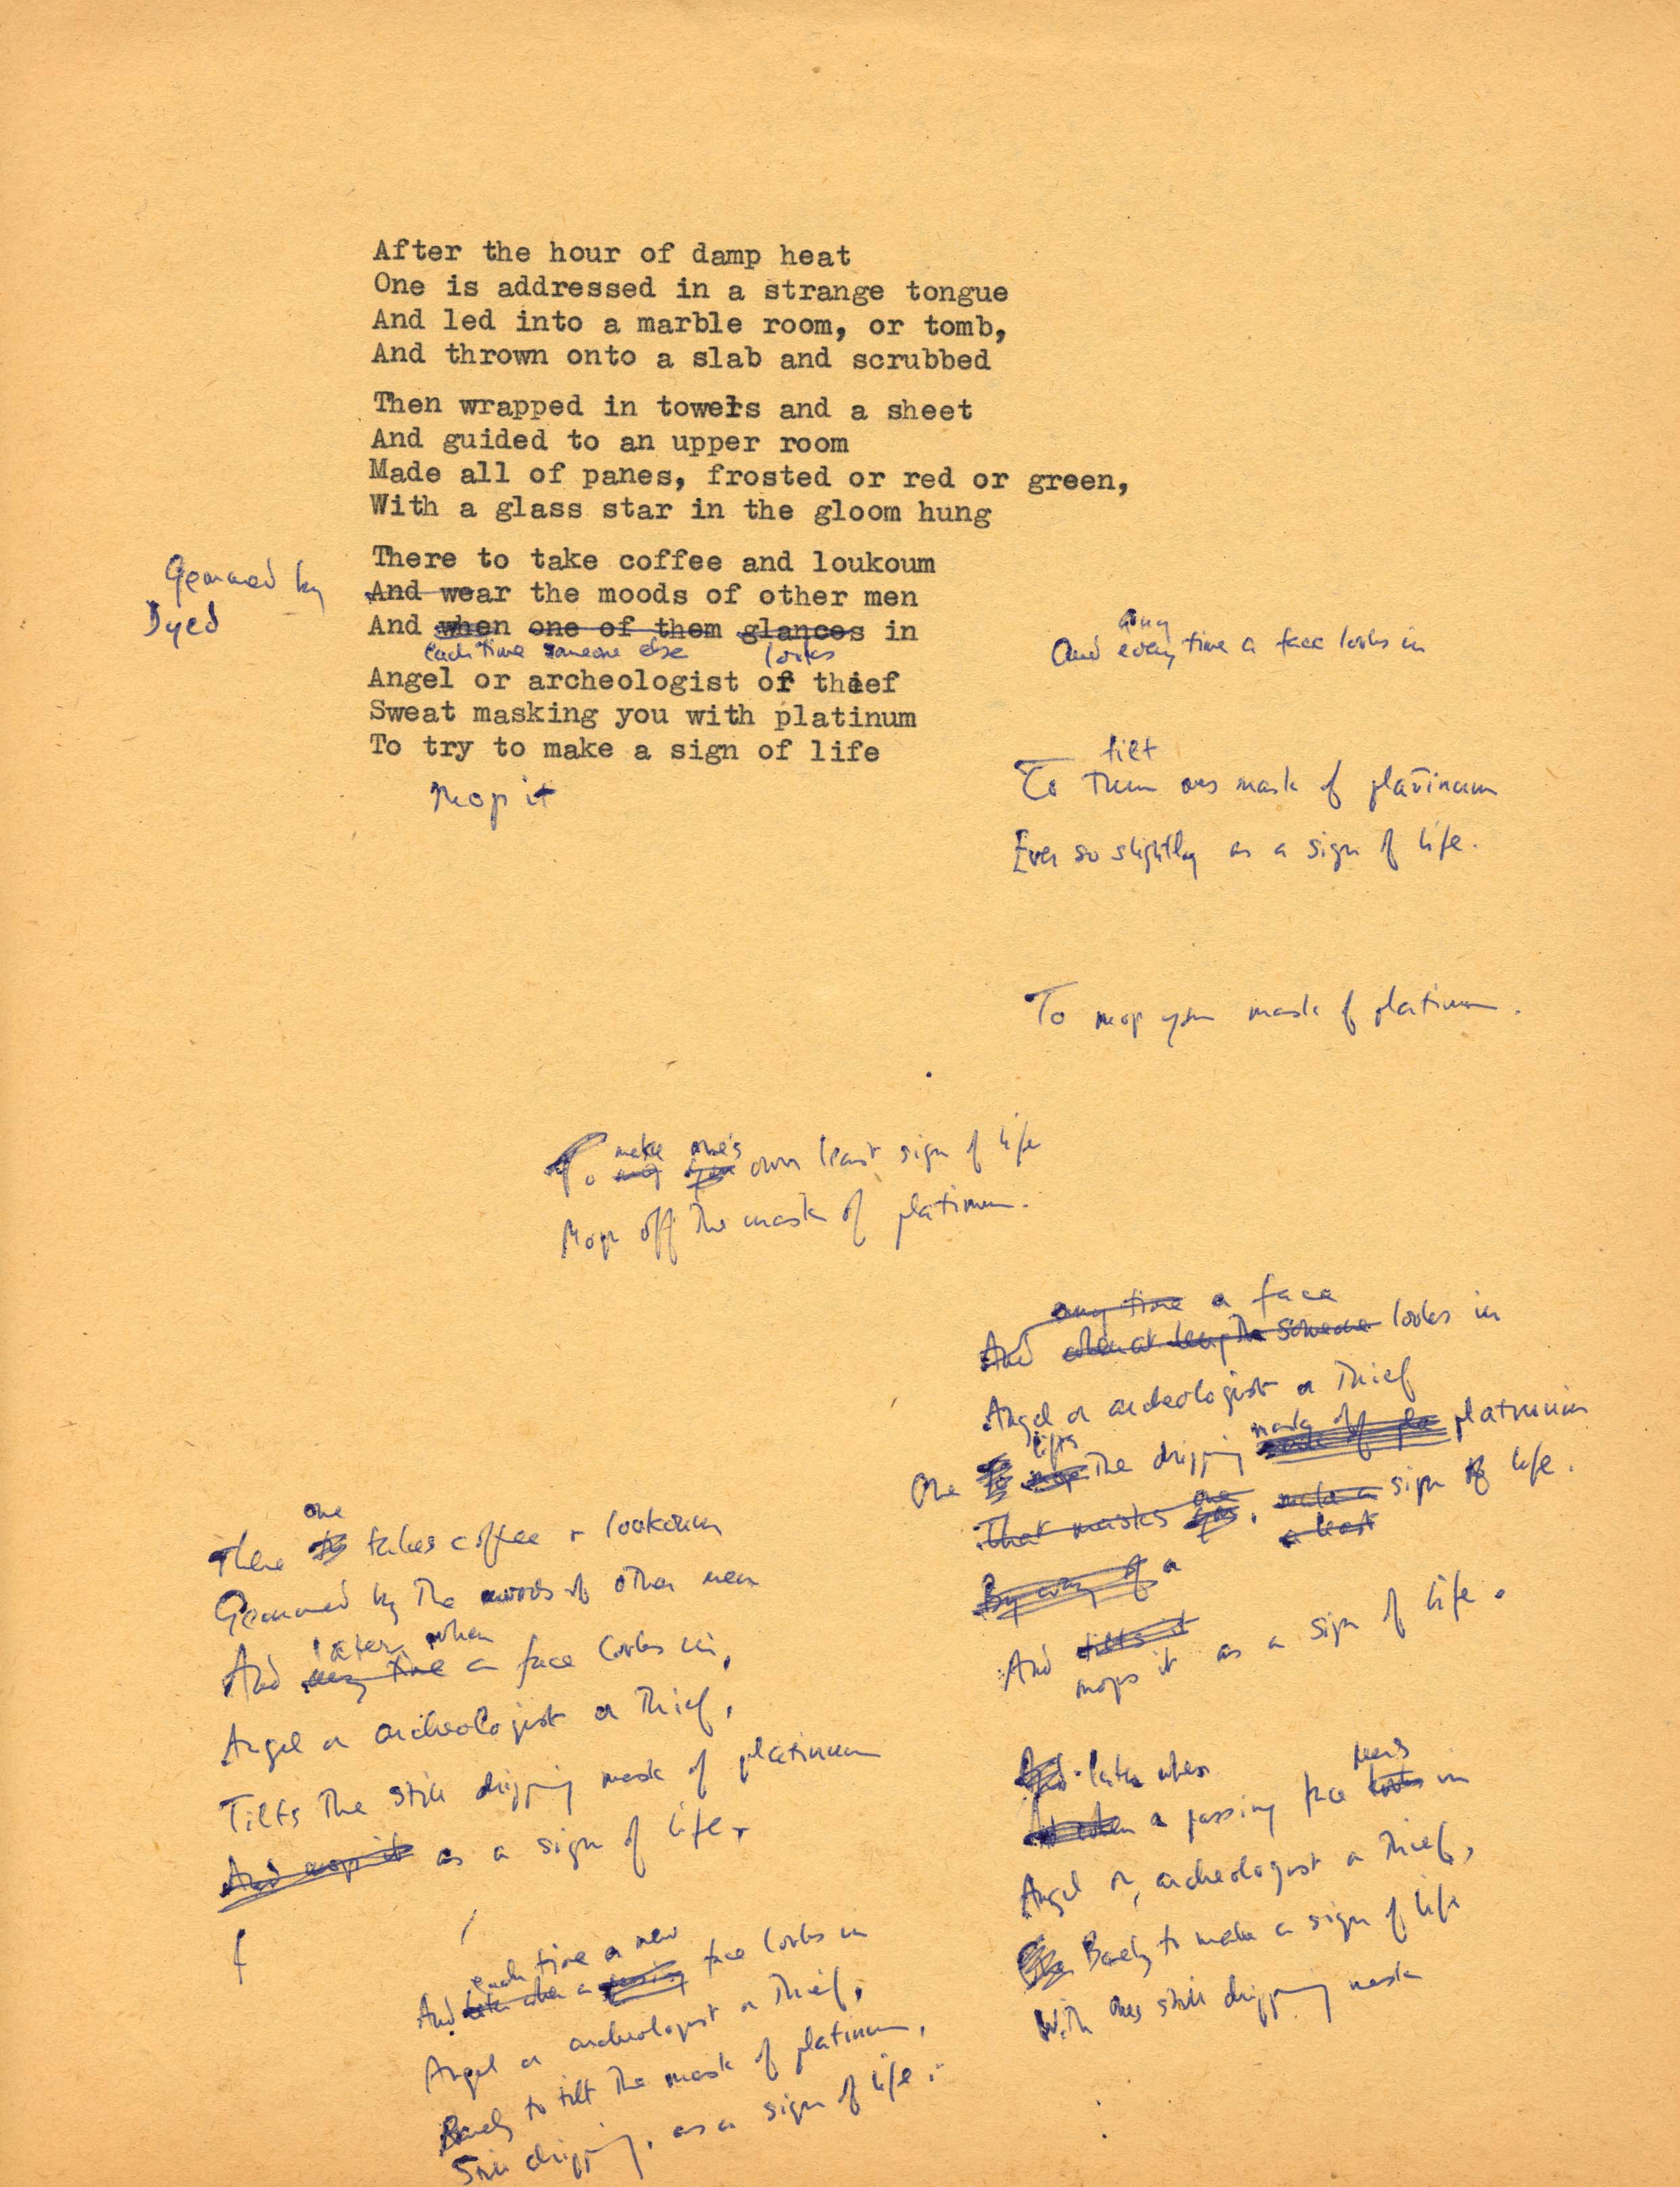 After the hour of damp heat
One is addressed in a strange tongue
And led into a marble room, or tomb,
And thrown onto a slab and scrubbed
Then wrapped in towels and a sheet
And guided to an upper room
Made all of panes, frosted or red or green,
With a glass star in the gloom hung
There to take coffee and loukoum
Gemmed by
Dyed
And wear the moods of other men
And when one of them glances in
each time someone else looks
Angel or archeologist or thief
Sweat masking you with platinum
To try to make a sign of life
Mop it
any
And every time a face looks in
tilt
To turn one's mask of platinum
Ever so slightly as a sign of life.
To mop your mask of platinum.
make one's
To own least sign of life
Mop off the mask of platinum.
any time a face
And when at length someone looks in
Angel or archeologist or thief
lifts
One the dripping mask of platinum
That masks one make a sign of life.
a least
By way of a
And tilts it
mops it as a sign of life.
one
There takes coffee + loukoum
Gemmed by the moods of other men
later when
And any time a face looks in,
Angel or archeologist or thief,
Tilts the still dripping mask of platinum
And mop it as a sign of life.
And later when
peers
And when a passing face looks in
Angel or archeologist or thief,
Barely to make a sign of life
With one's still dripping mask
each time a new
And later when a passing face looks in
Angel or archeologist or thief,
Barely to tilt the mask of platinum,
Still dripping, as a sign of life.